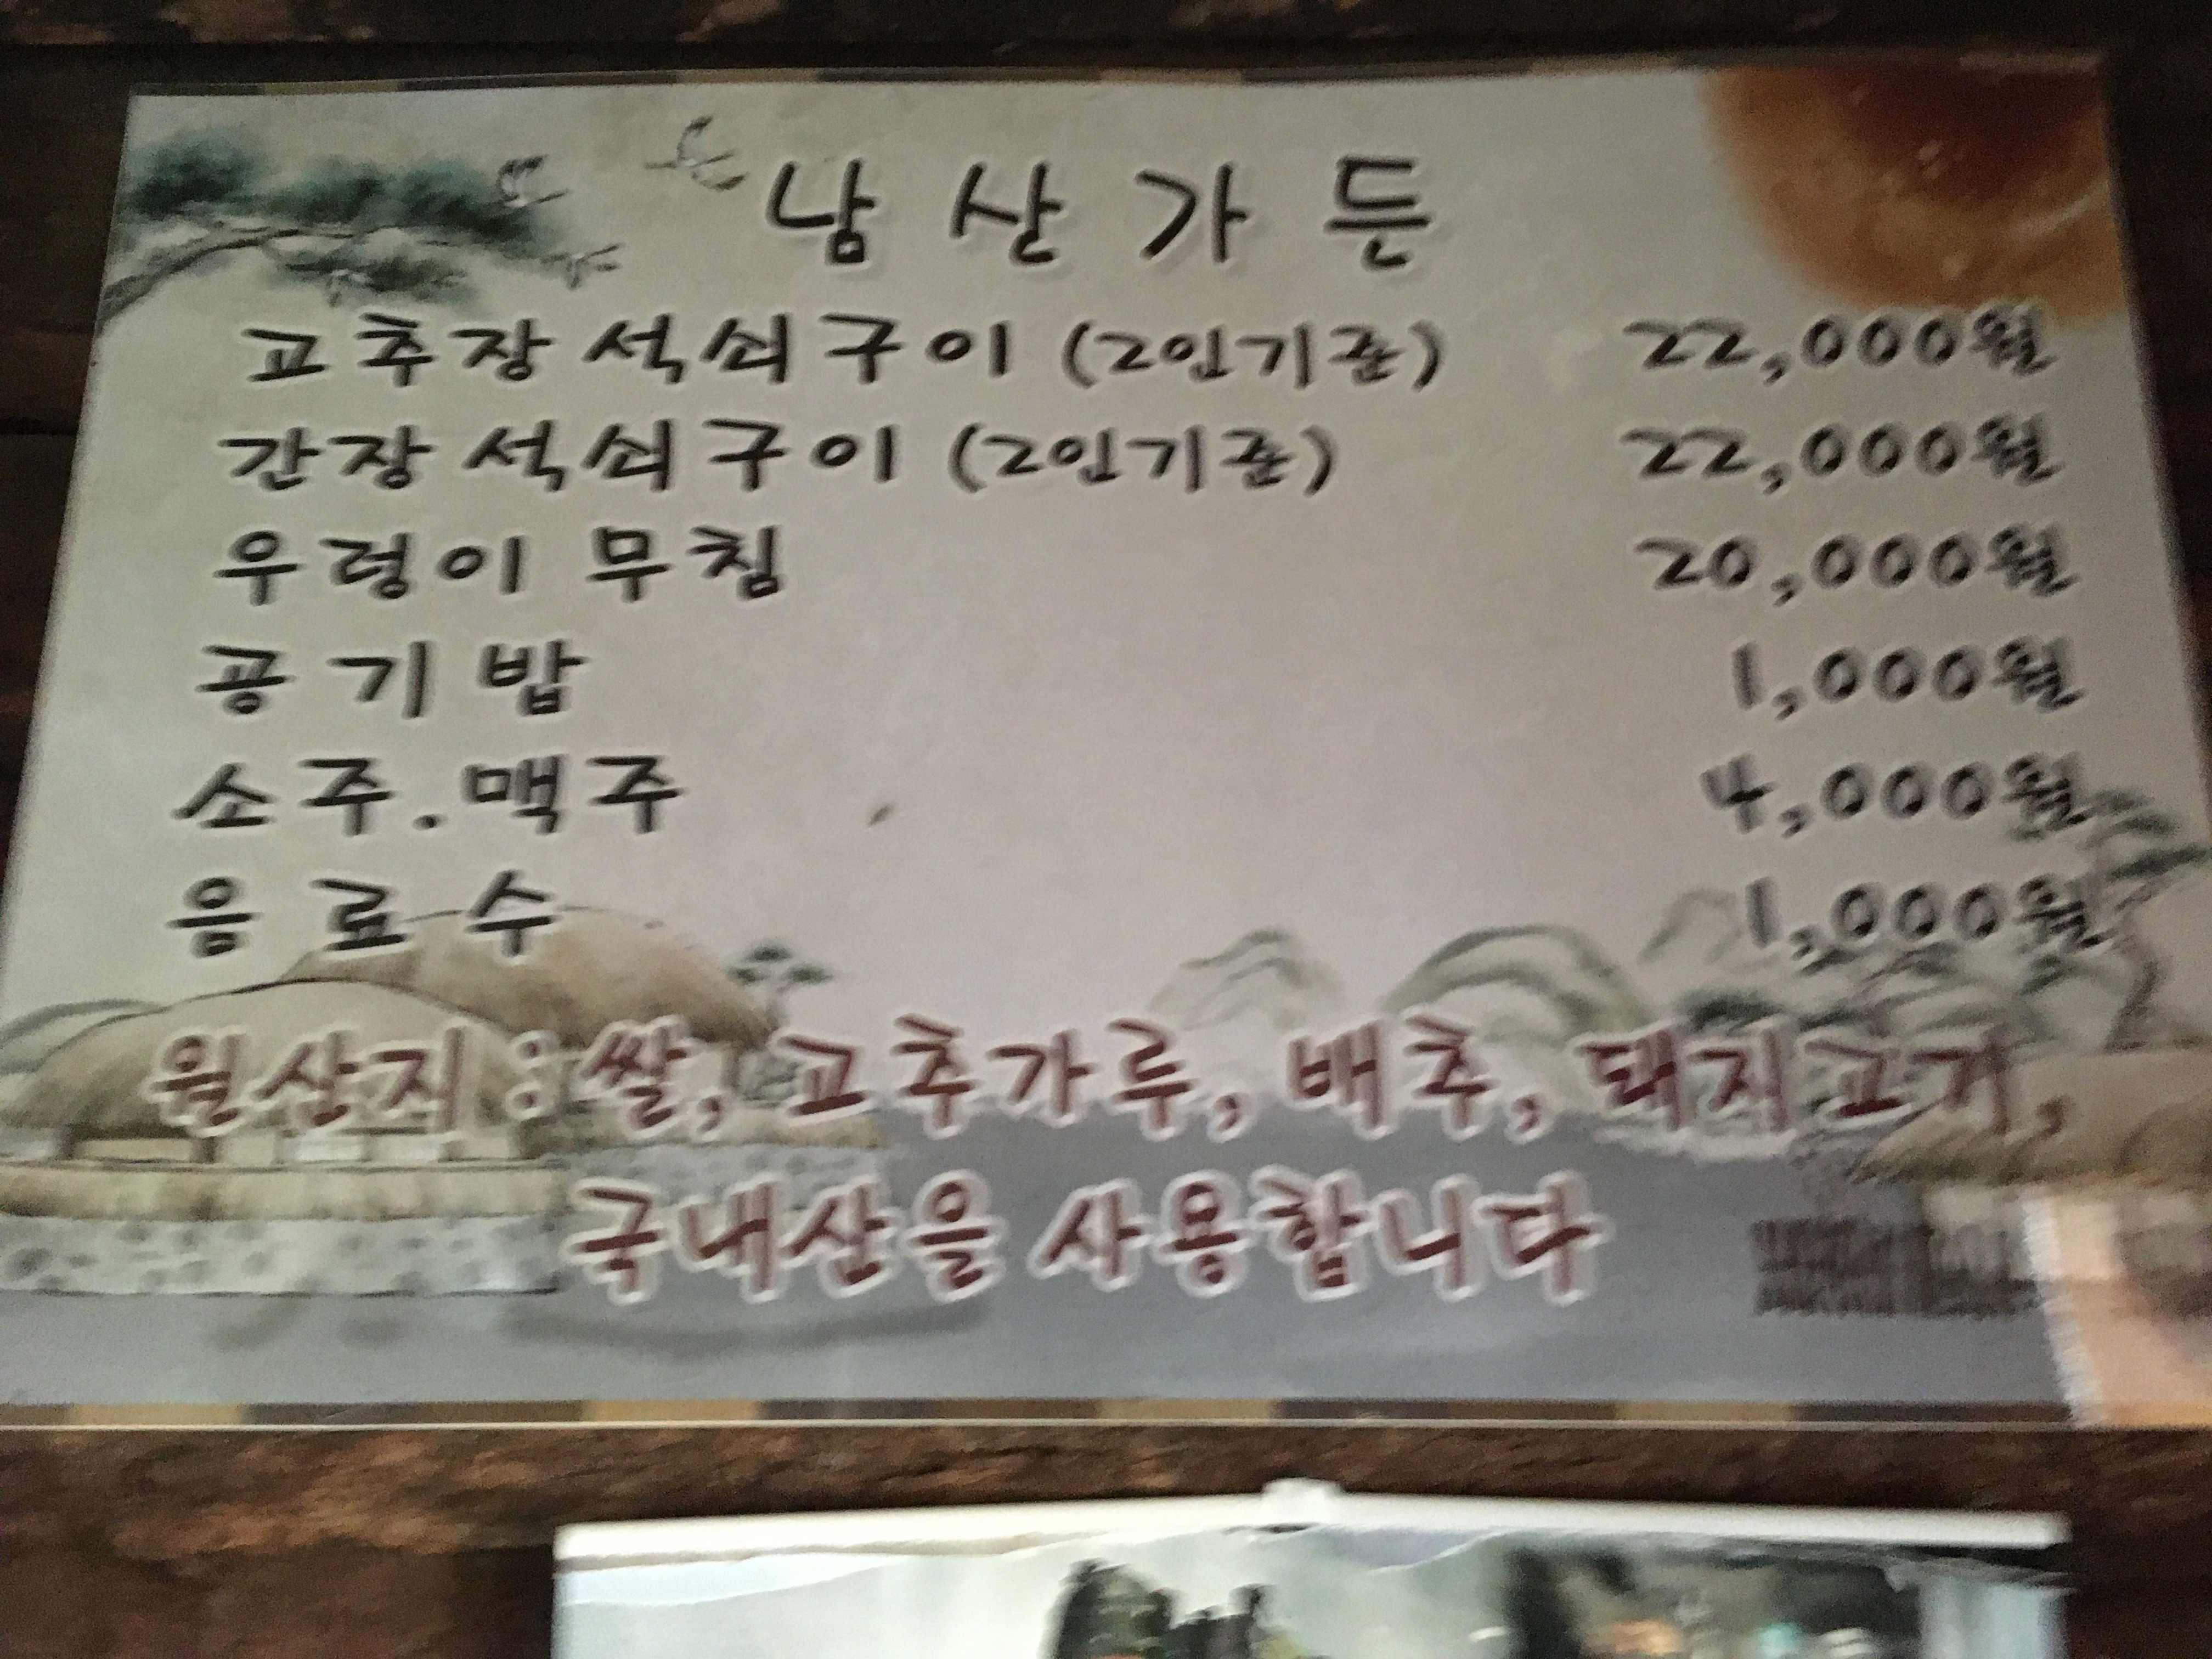 남산가든
고추장석쇠구이 (2인기준) 22,000원
간장석쇠구이 (2인기준) 22,000원
우렁이 무침 20,000원
공기밥 1,000원
소주.맥주 4,000원
음료수 1,000원
원산지 : 쌀, 고추가루, 배추, 돼지고기,
국내산을 사용합니다